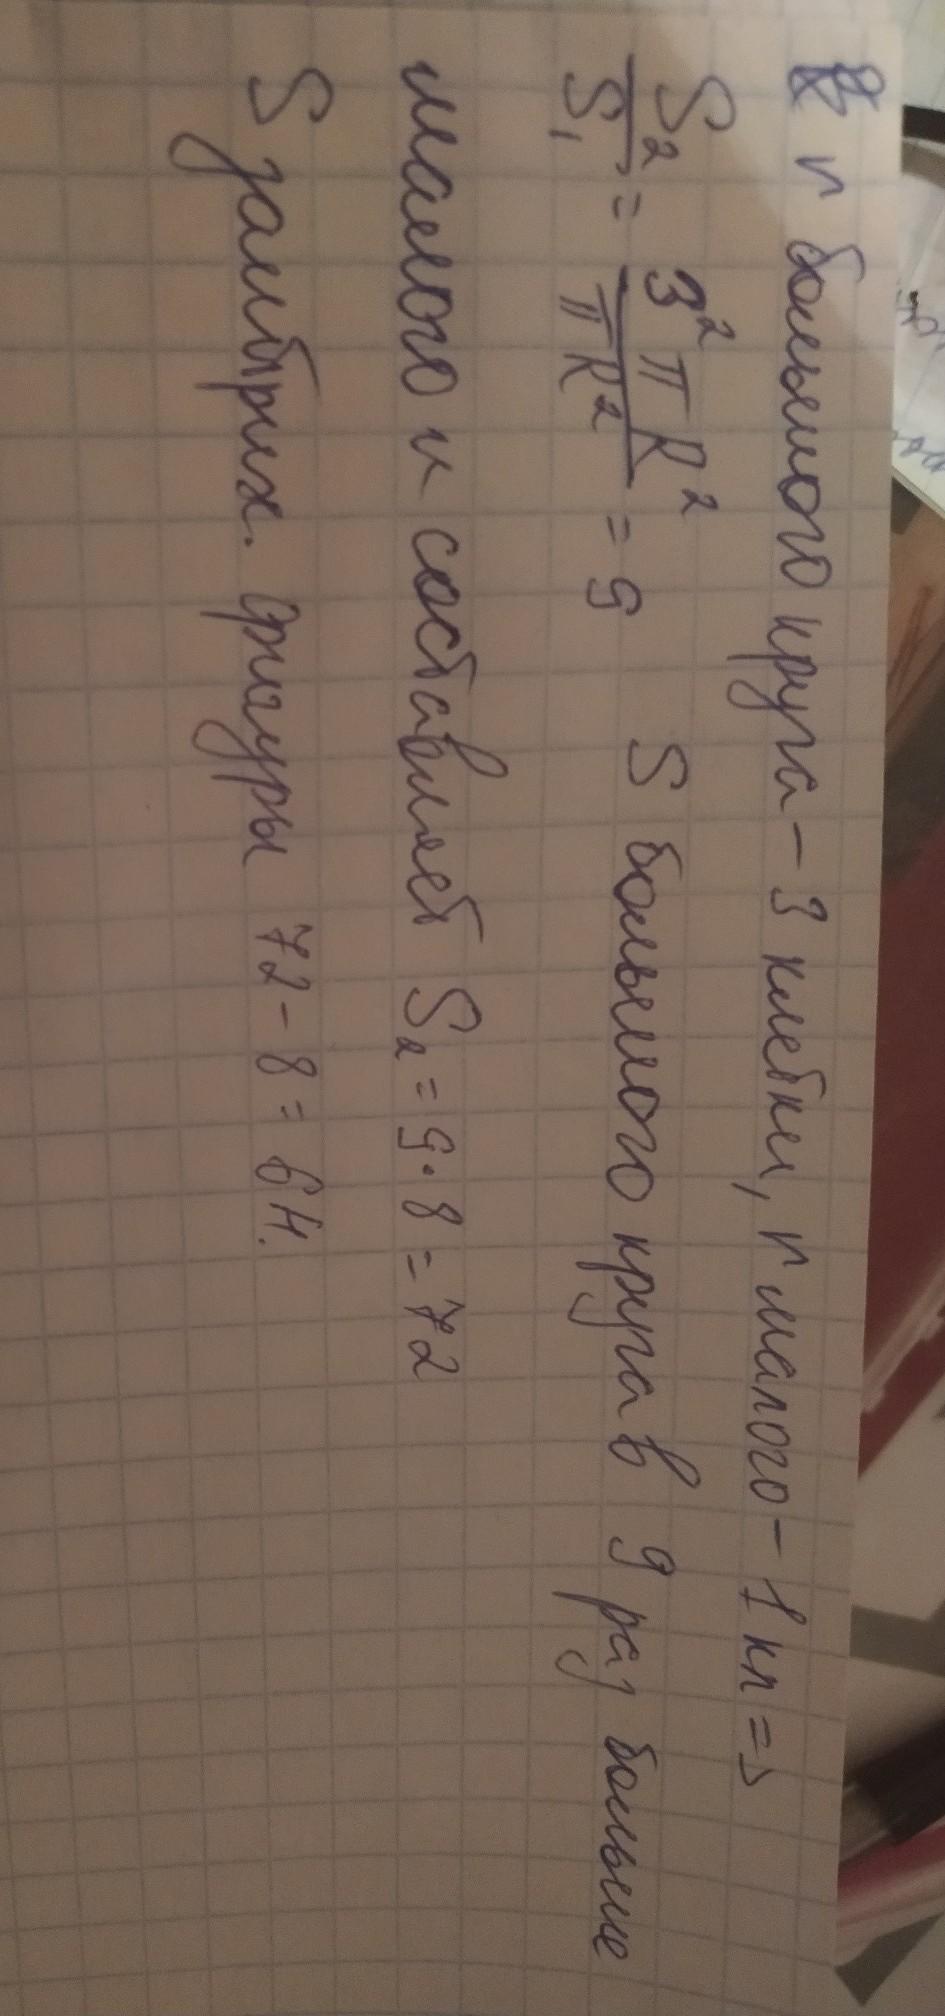 r большого круга – 3 клетки, r малого – 1 кл =>
S₂/S₁ = 3²πR²/πR² = 9 S большого круга в 9 раз больше
малого и составляет S₂ = 9·8 = 72
S заштрих. фигуры 72 - 8 = 64.